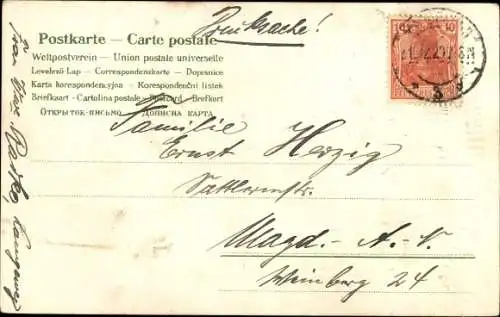 Drucksache!
Postkarte — Carte postale
Weltpostverein — Union postale universelle
Levelező-Lap — Correspondenzkarte — Dopisnice
Karta korespondencyjna — Korespondenční lístek
Briefkaart — Cartolina postale — Postcard — Brefkort
Открытое письмо — Дописна карта
Familie
Ernst Herzig
Magd.- A. N.
Weinberg 24